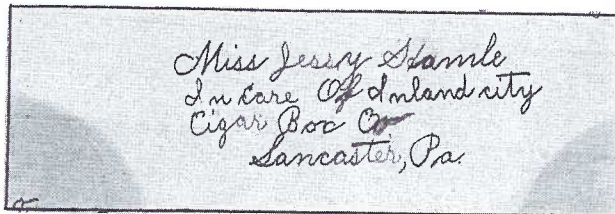 Miss Jessy Stamle
In Care Of Inland city
Cigar Box Co
Lancaster, Pa.